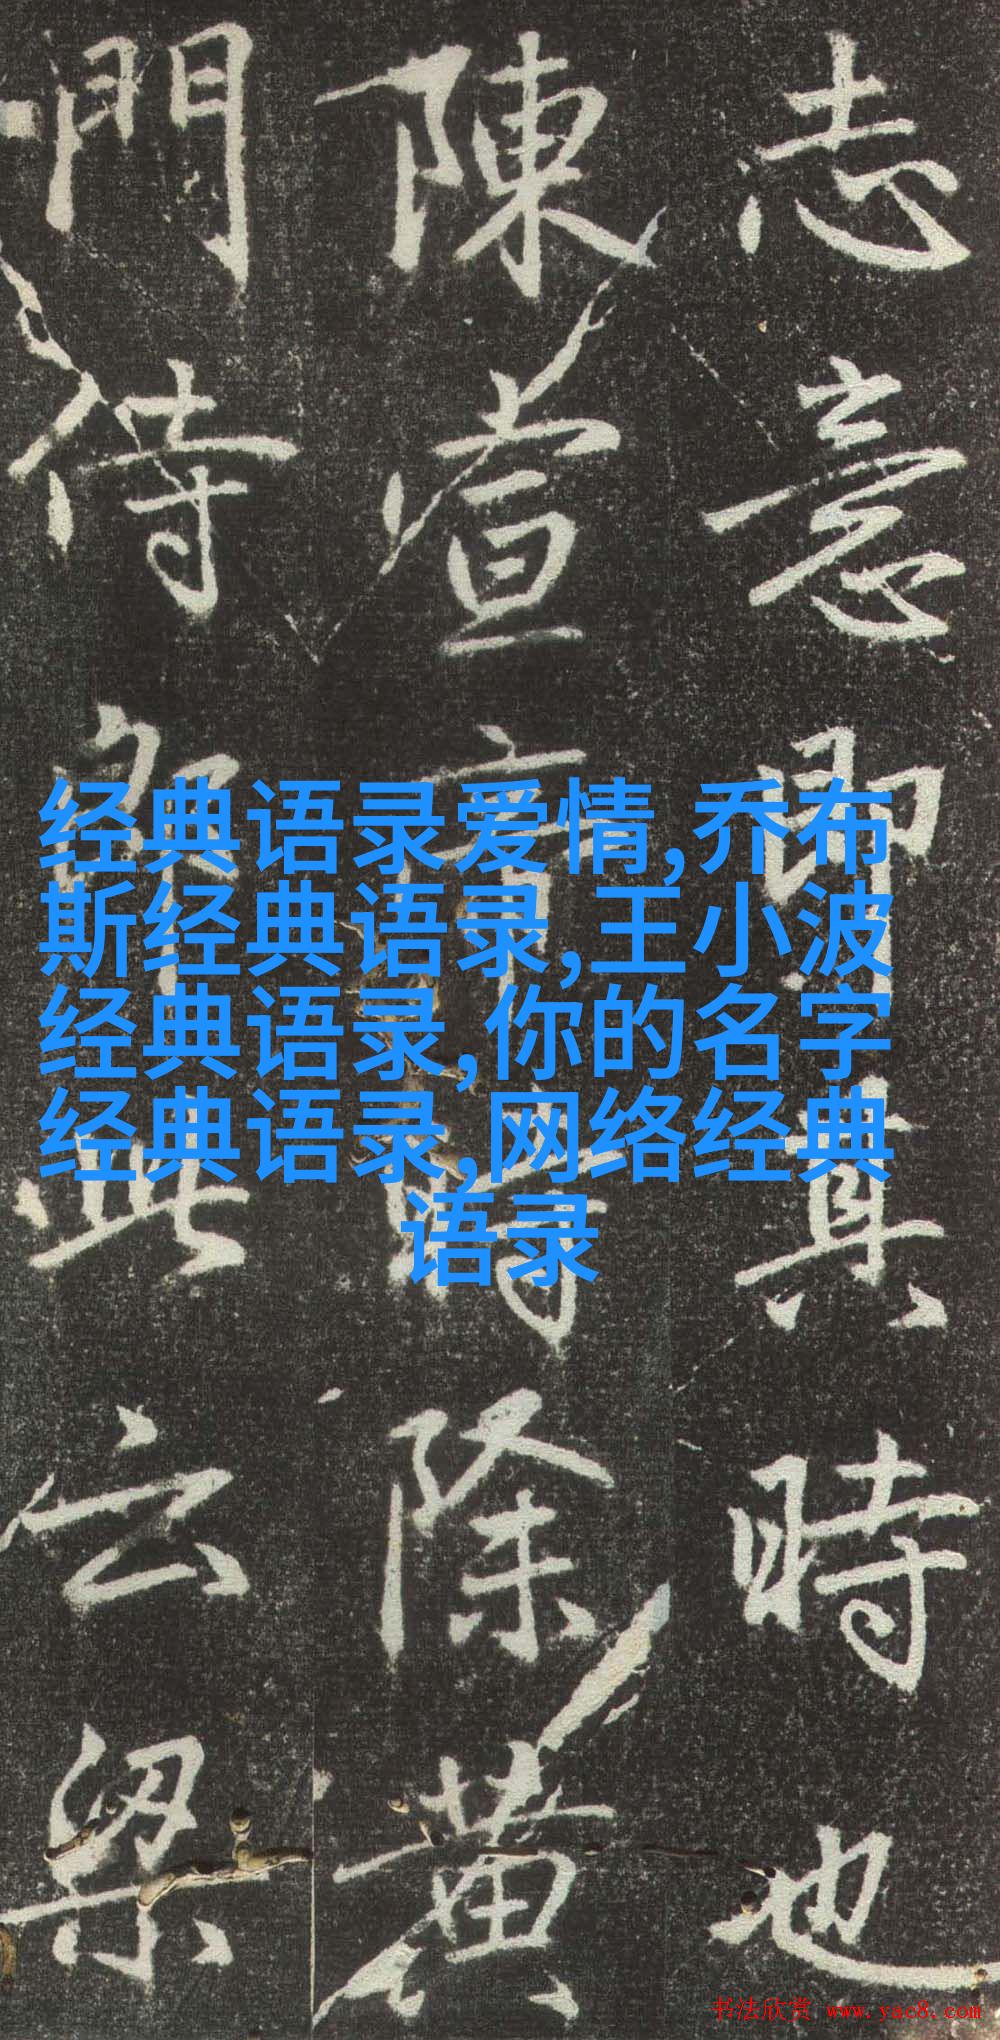 志意即真時也
陳宣帝時除黃
門侍郎此云梁
经典语录爱情,乔布
斯经典语录,王小波
经典语录,你的名字
经典语录,网络经典
语录
书法欣赏 www.yac8.com